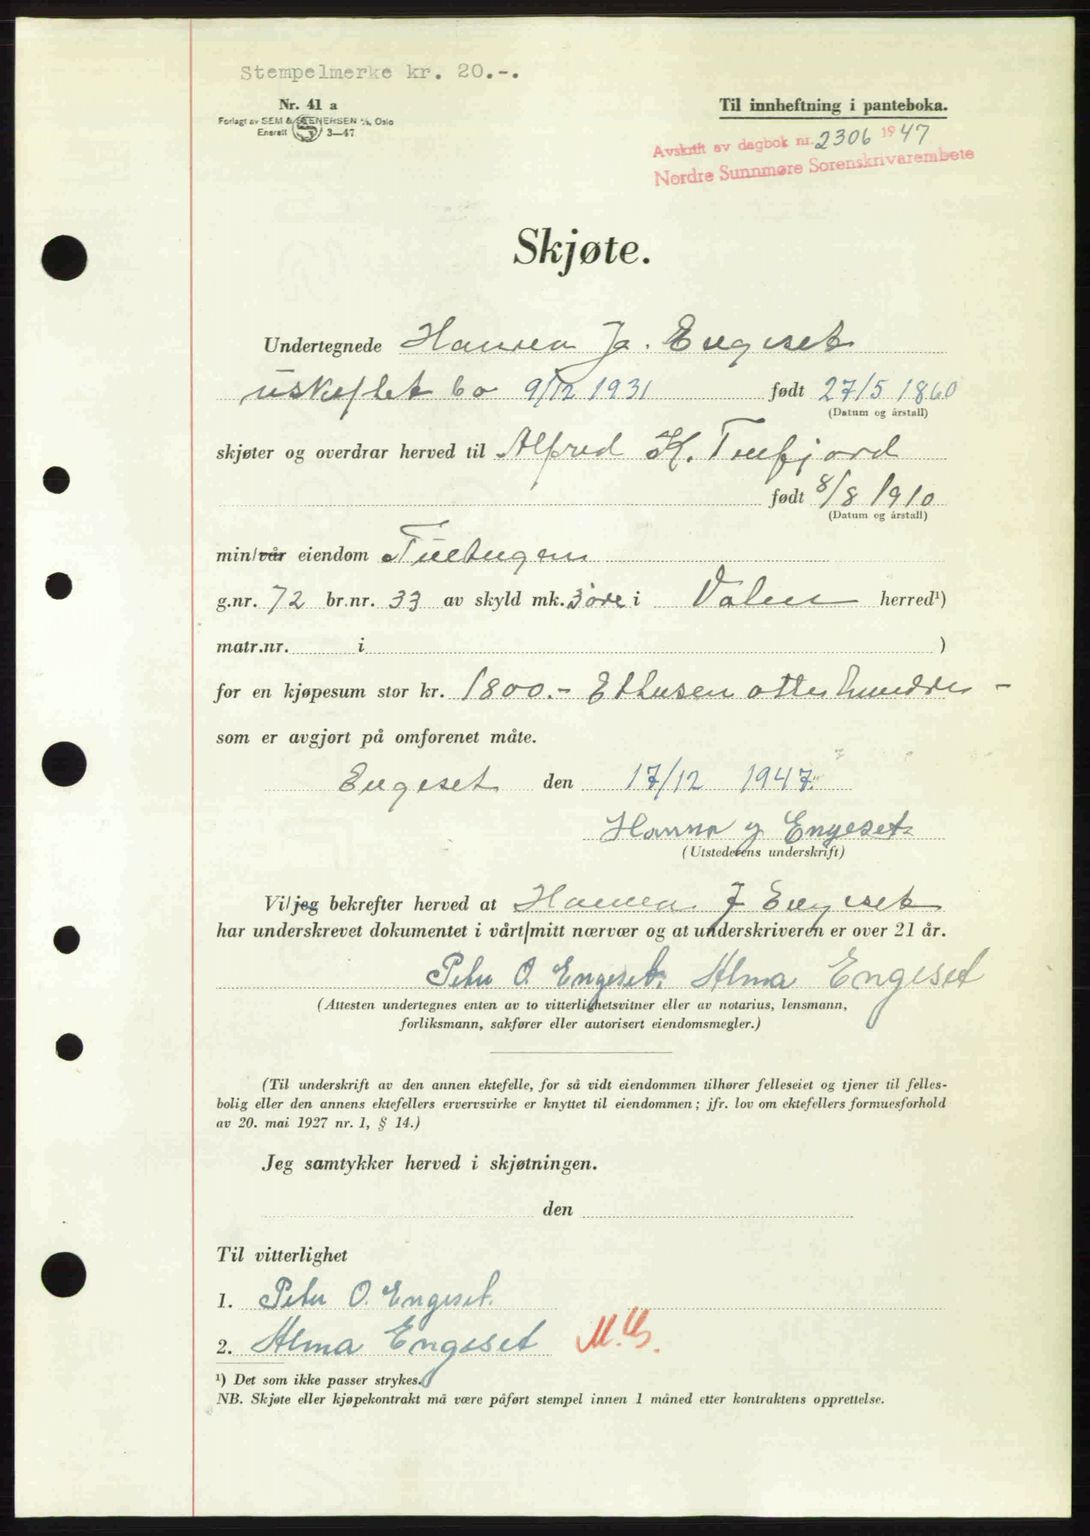 Stempelmerke kr. 20.-.
Nr. 41 a
Til innheftning i panteboka.
Forlagt av SEM & STENERSEN A/S, Oslo
Enerett 3—47
Avskrift av dagbok nr. 2306 1947
Nordre Sunnmøre Sorenskrivarembete
Skjøte.
Undertegnede Hanna J. Engeset
uskiftet bo 9/12 1931 født 27/5 1860
(Datum og årstall)
skjøter og overdrar herved til Alfred K. Tuefjord
født 8/8 1910
(Datum og årstall)
min/vår eiendom
g.nr. 72 br.nr. 33 av skyld mk. 3 øre i Vatne herred¹)
matr.nr. i )
for en kjøpesum stor kr. 1800.- Ettusen åttehundre -
som er avgjort på omforenet måte.
Engeset den 17/12 1947.
Hanna J Engeset
(Utstederens underskrift)
Vi/jeg bekrefter herved at Hanna J Engeset
har underskrevet dokumentet i vårt/mitt nærvær og at underskriveren er over 21 år.
Peter O. Engeset. Alma Engeset
(Attesten undertegnes enten av to vitterlighetsvitner eller av notarius, lensmann,
forliksmann, sakfører eller autorisert eiendomsmegler.)
(Til underskrift av den annen ektefelle, for så vidt eiendommen tilhører felleseiet og tjener til felles-
bolig eller den annens ektefellers ervervsvirke er knyttet til eiendommen; jfr. lov om ektefellers formuesforhold
av 20. mai 1927 nr. 1, § 14.)
Jeg samtykker herved i skjøtningen.
den
Til vitterlighet
1. Peter O. Engeset.
2. Alma Engeset M.B.
¹) Det som ikke passer strykes.
NB. Skjøte eller kjøpekontrakt må være påført stempel innen 1 måned etter kontraktens opprettelse.